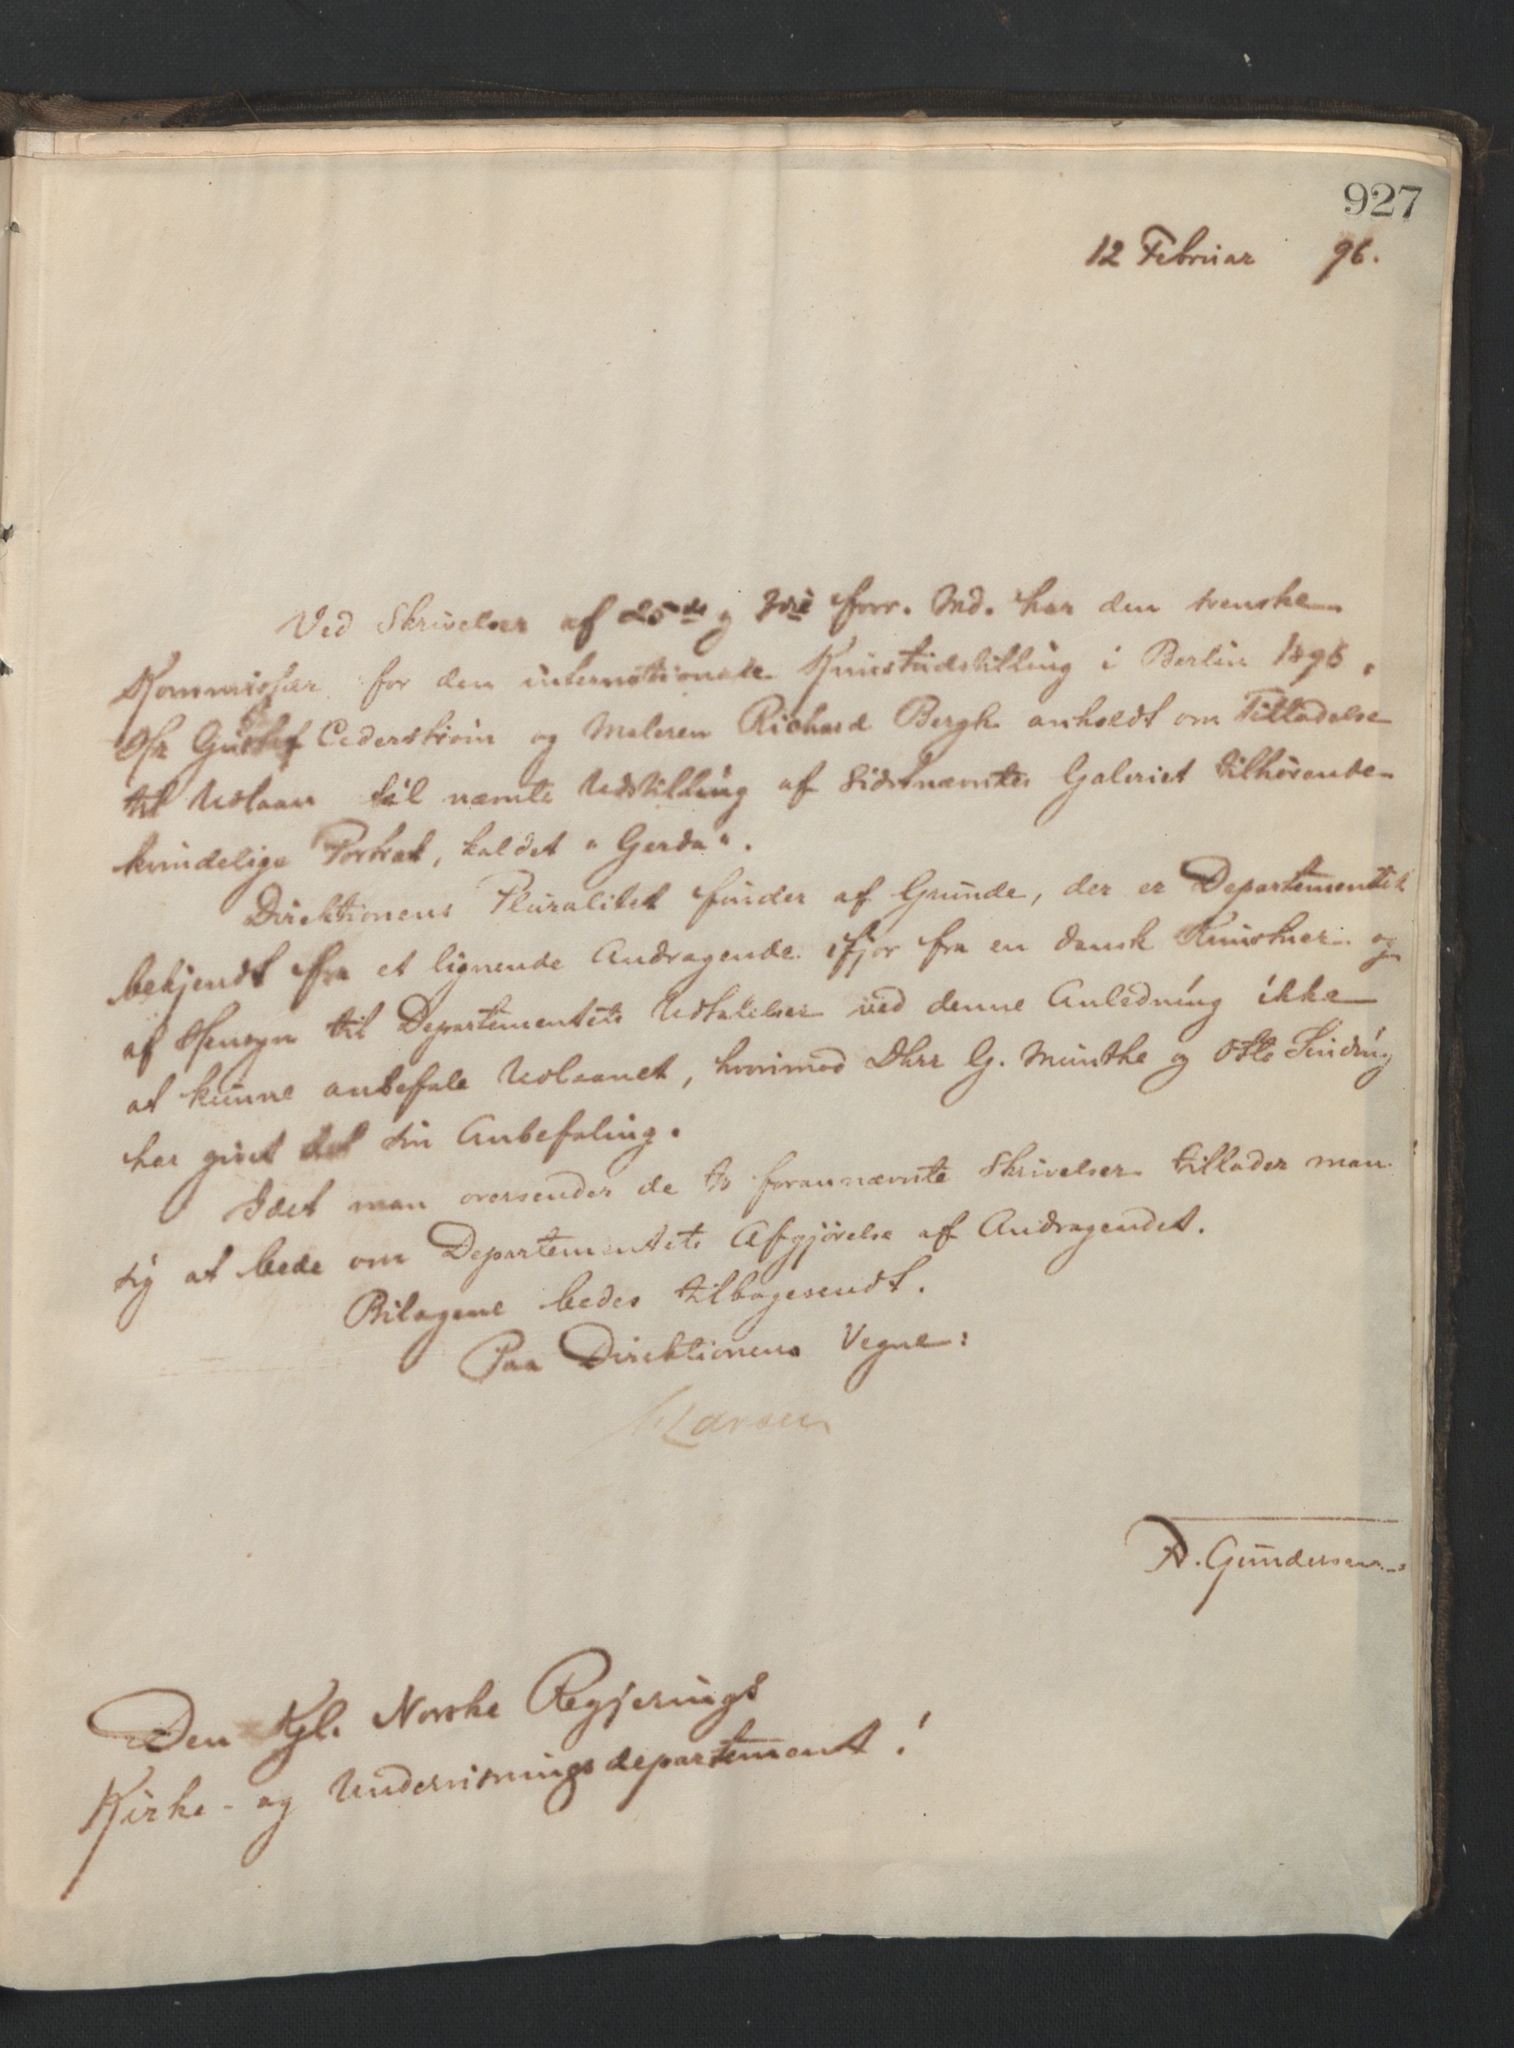 927
12 Februar 96.
Ved Skrivelser af 25de og forr. Md. har den svenske
Kommissær for den internationale Kunstudstilling i Berlin 1896,
Hr. Gustaf Cederstrøm og Maleren Richard Bergh anholdt om Tilladelse
til Udlaan til nævnte Udstilling af sidstnævntes Galeriet tilhørende
kvindelige Portræt, kaldet "Gerda".
Direktionens Pluralitet finder af Grunde, der er Departementet
bekjendt fra et lignende Andragende ifjor fra en dansk Kunstner og
af Hensyn til Departementets Udtalelser ved denne Anledning ikke
at kunne anbefale Udlaanet, hvorimod Dhrr G. Munthe og Otto Sinding
har givet det sin Anbefaling.
Idet man oversender de to forannævnte Skrivelser tillader man
sig at bede om Departementets Afgjørelse af Andragendet.
Bilagene bedes tilbagesendt.
Paa Direktionens Vegne:
Larsen
A. Gundersen
Den Kgl. Norske Regjerings
Kirke- og Undervisningsdepartement!